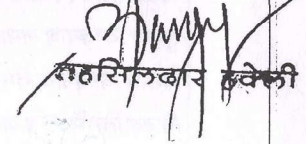 तहसिलदार हवेली